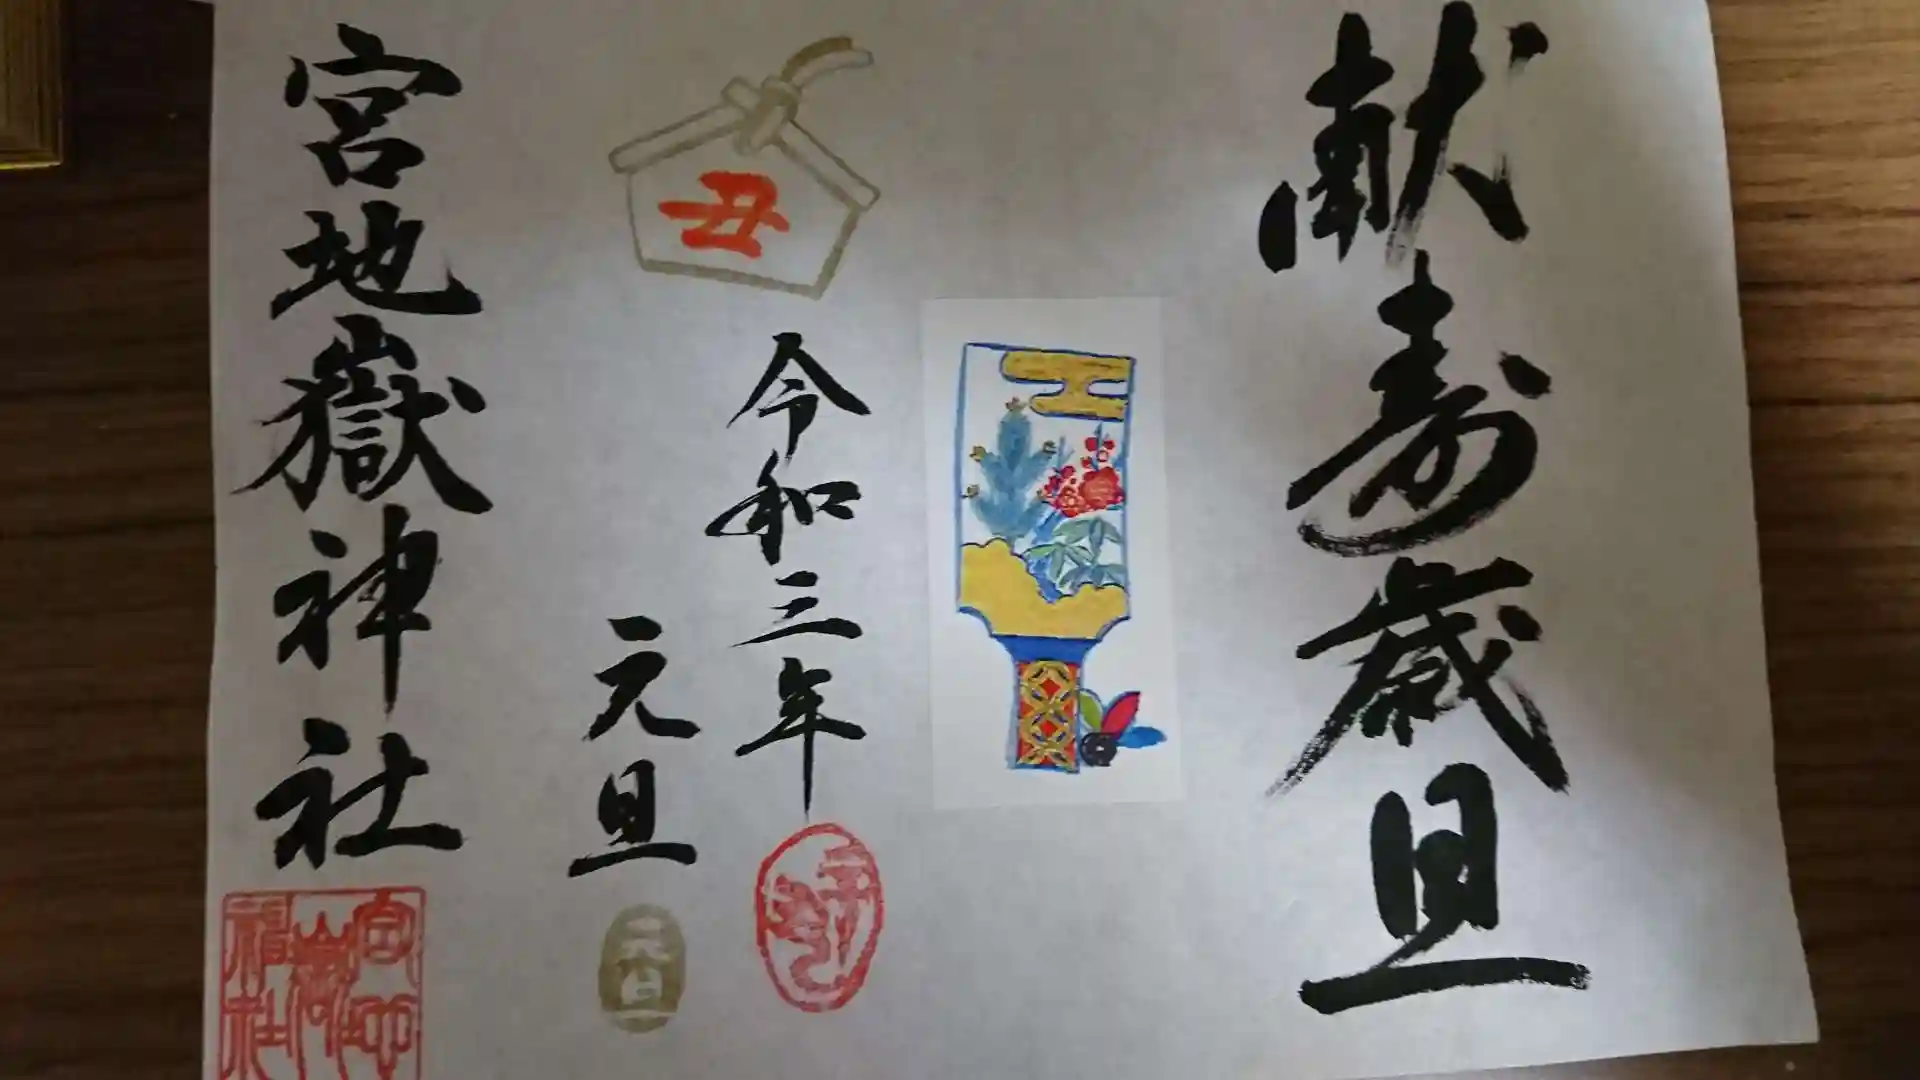 献寿歳旦
丑
令和三年
元旦
元旦
宮地嶽神社
宮地
嶽
神社